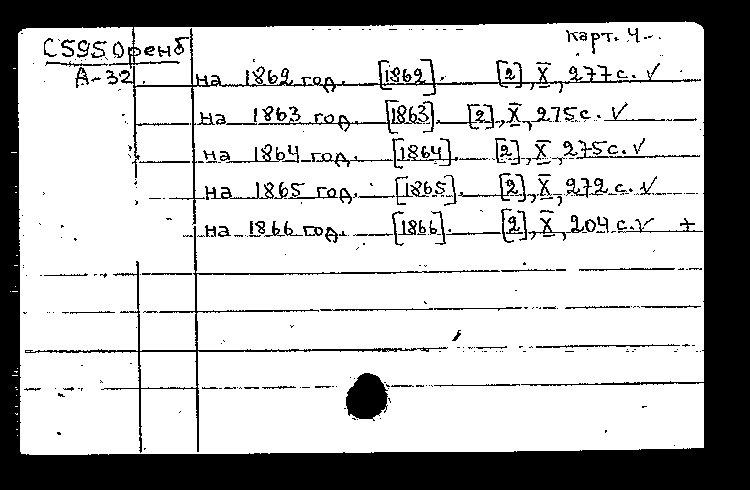 Карт. 4
С595Оренб
А-32
на 1862 год. [1862]. [2], X, 277 с. ✓
на 1863 год. [1863]. [2], X, 275 с. ✓
на 1864 год. [1864]. [2], X, 275 с. ✓
на 1865 год. [1865]. [2], X, 272 с. ✓
на 1866 год. [1866]. [2], X, 204 с. ✓ +